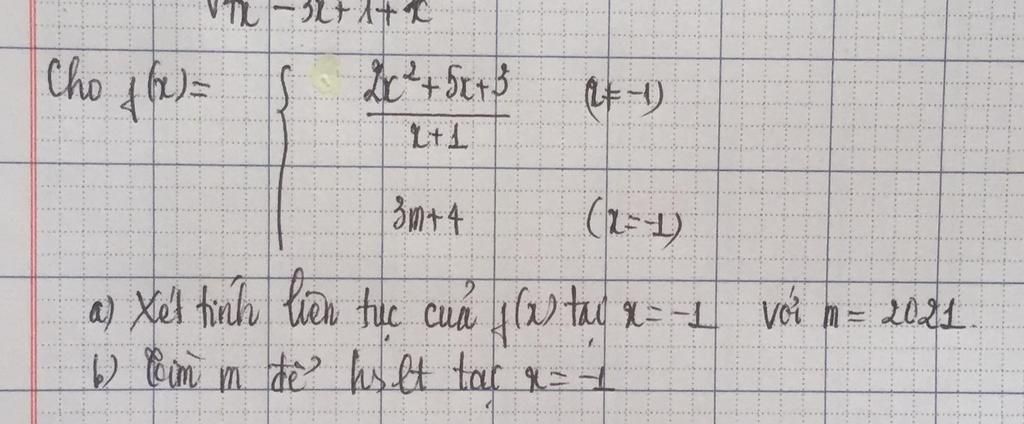 √x − 3x + 1 + x
Cho f(x) = { 2x² + 5x + 3 / x + 1 (x ≠ −1)
3m + 4 (x = −1)
a) Xét tính liên tục của f(x) tại x = −1 với m = 2021.
b) Tìm m để hs lt tại x = −1